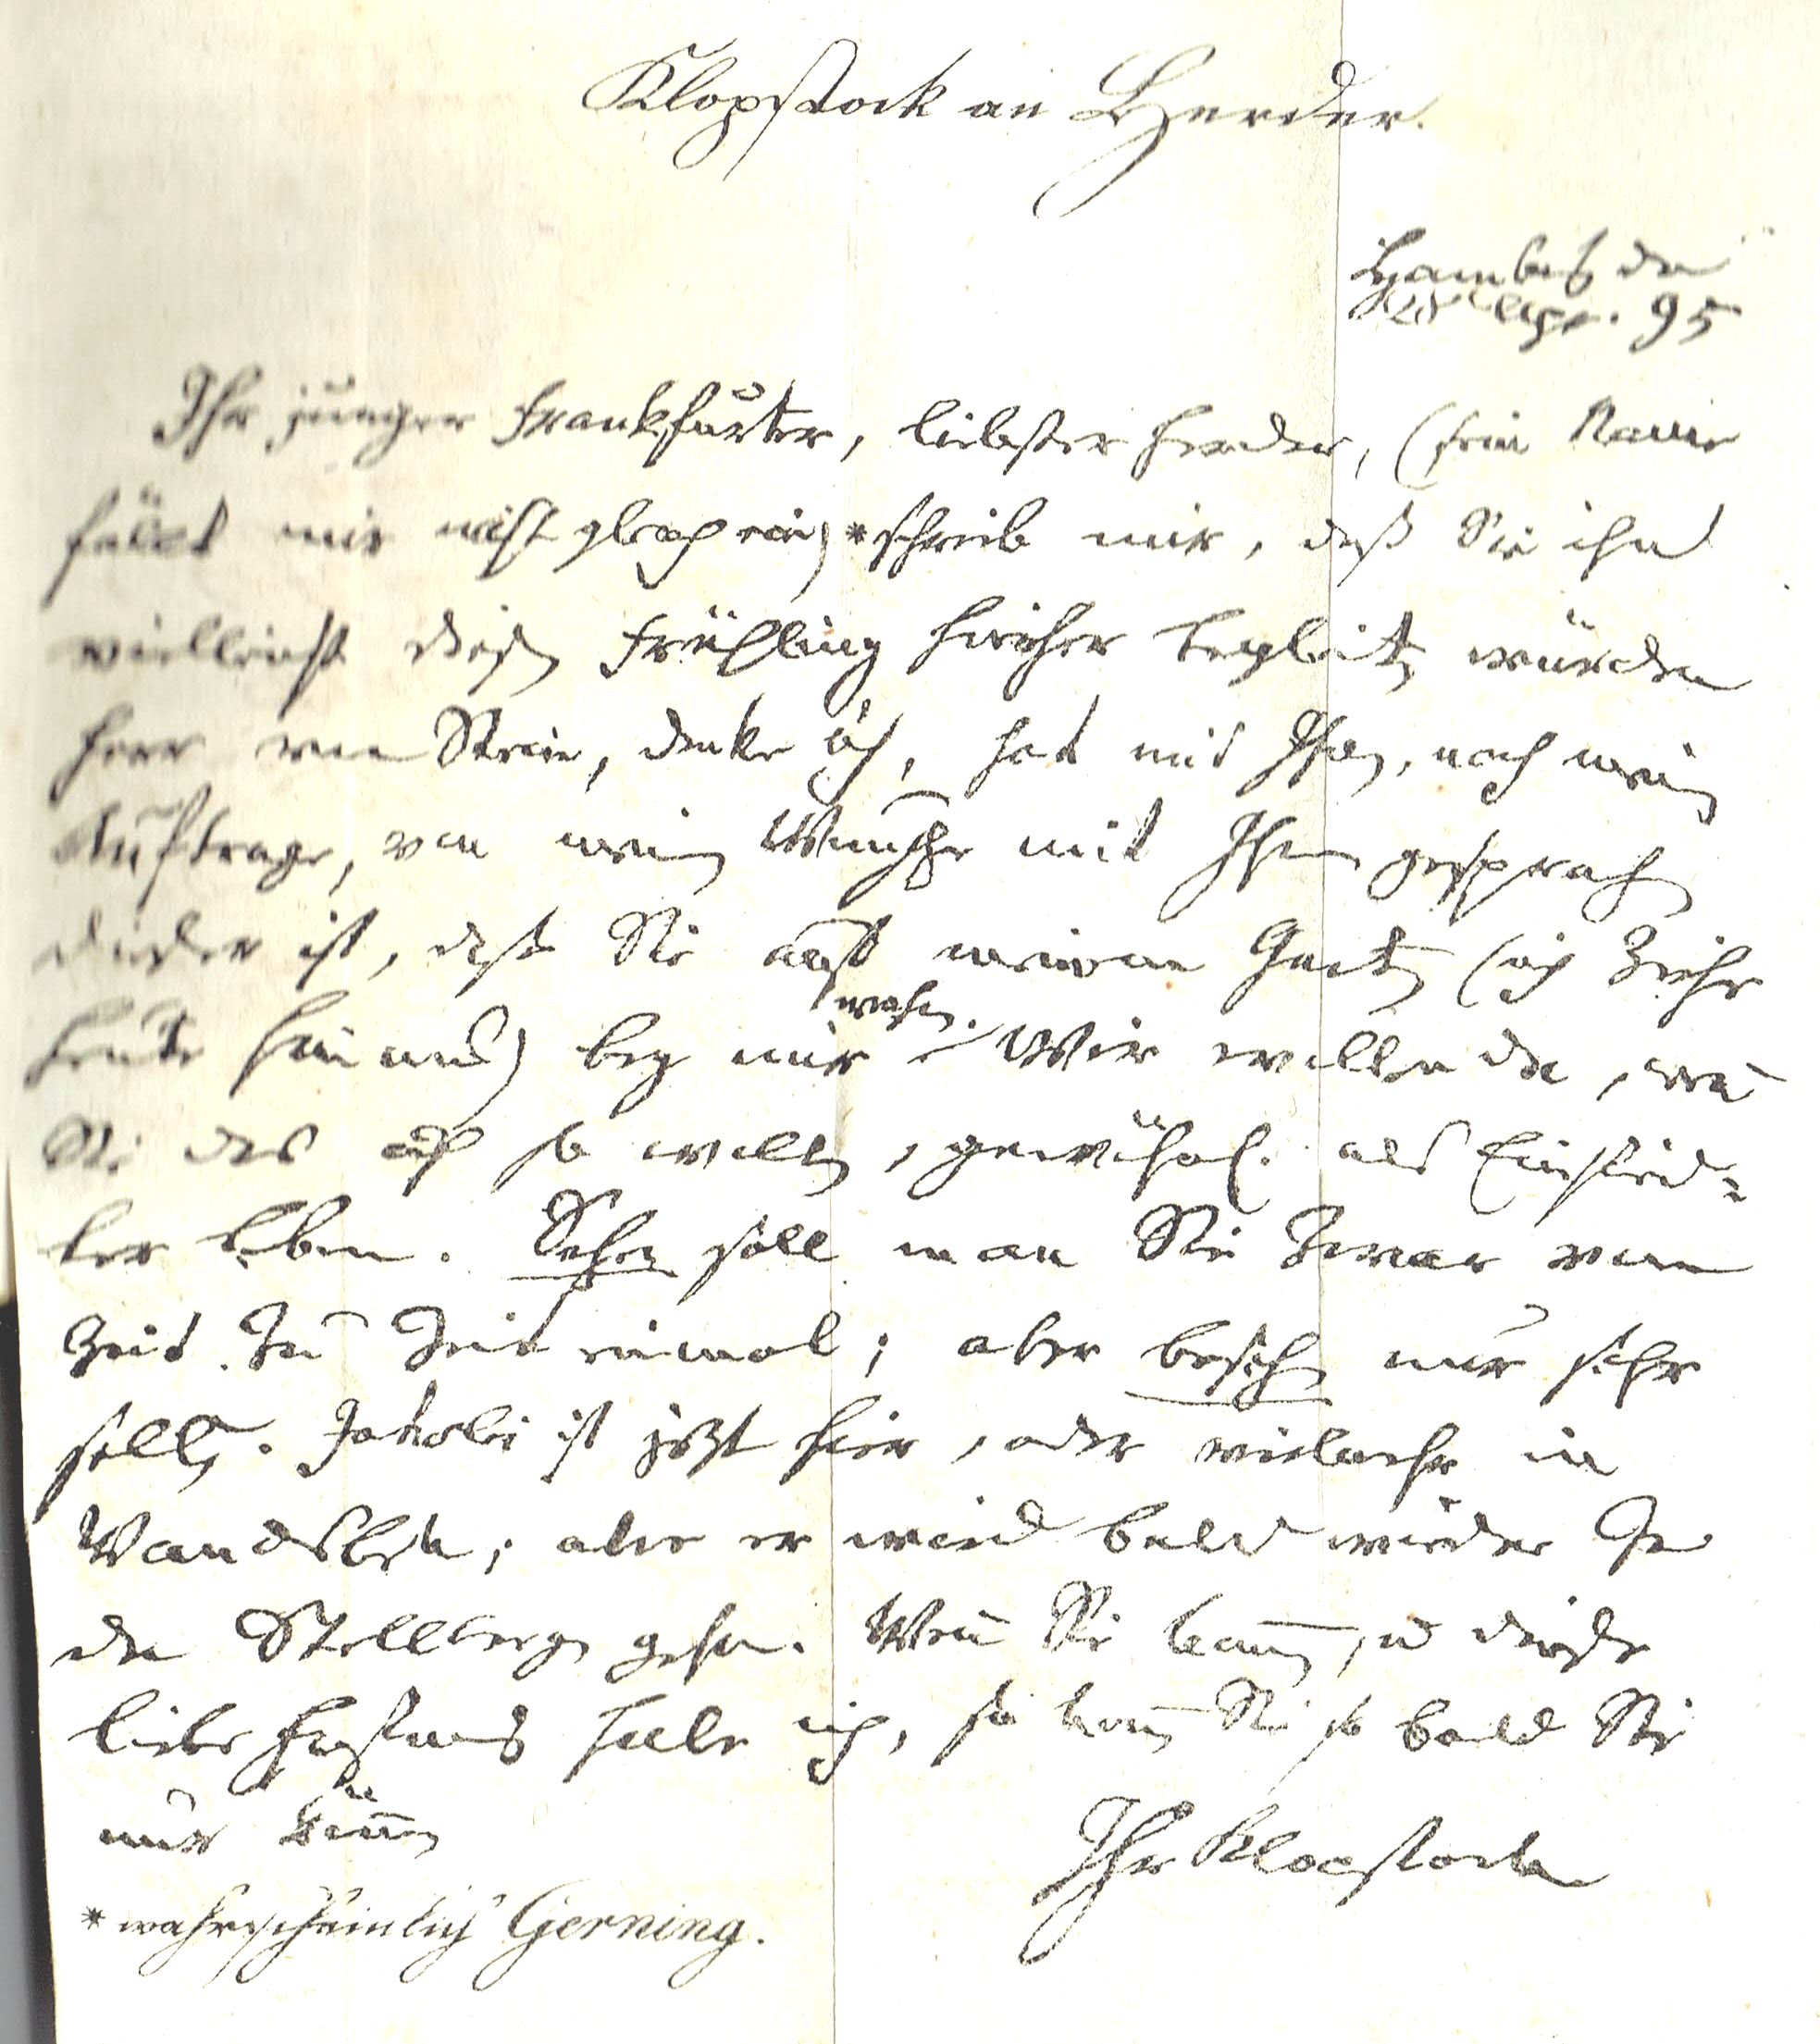 Klopstock an Herder.
Hamburg den
28 Apr. 95
Ihr junger Frankfurter, liebster Herder, (sein Name
fällt mir nicht gleich ein) * schrieb mir, daß Sie ihn
vielleicht diesen Frühling hieher begleiten würden
Herr von Stein, denke ich, hat mit Ihnen, nach meinem
Auftrage, von meinem Wunsche mit Ihnen gesprochen
dieser ist, daß Sie in meinem Garten (ich ziehe
heute hinaus) bey mir wohnen. Wir wollen da, wenn
Sie das auch so wollen, gewöhnl. als Einsied=
ler leben. Sehen soll man Sie zwar von
Zeit zu Zeit einmal; aber besuchen nur sehr
selten. Jakobi ist jezt hier, oder vielmehr in
Wandsbek; aber er wird bald wieder zu
den Stollbergen gehen. Wenn Sie kommen, u diese
liebe Hofnung habe ich, so kommen Sie so bald Sie
nur können
Ihr Klopstock
* wahrscheinlich Gerning.